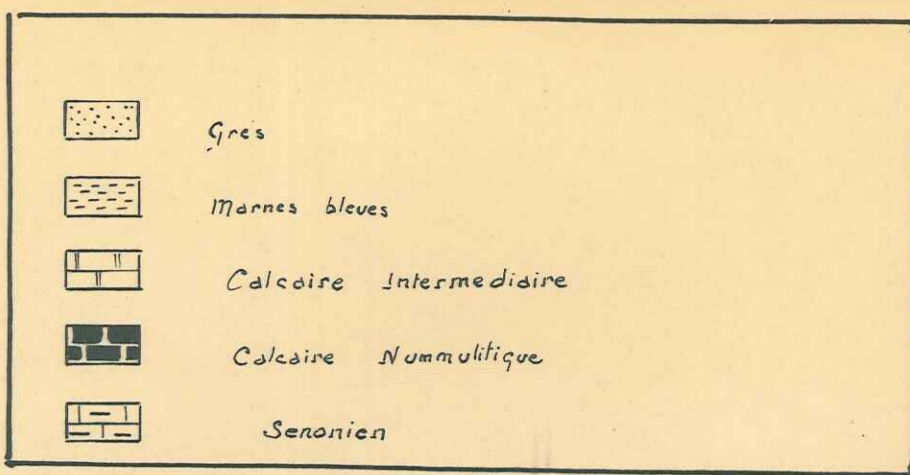 Gres
Marnes bleues
Calcaire Intermediaire
Calcaire Nummulitique
Senonien